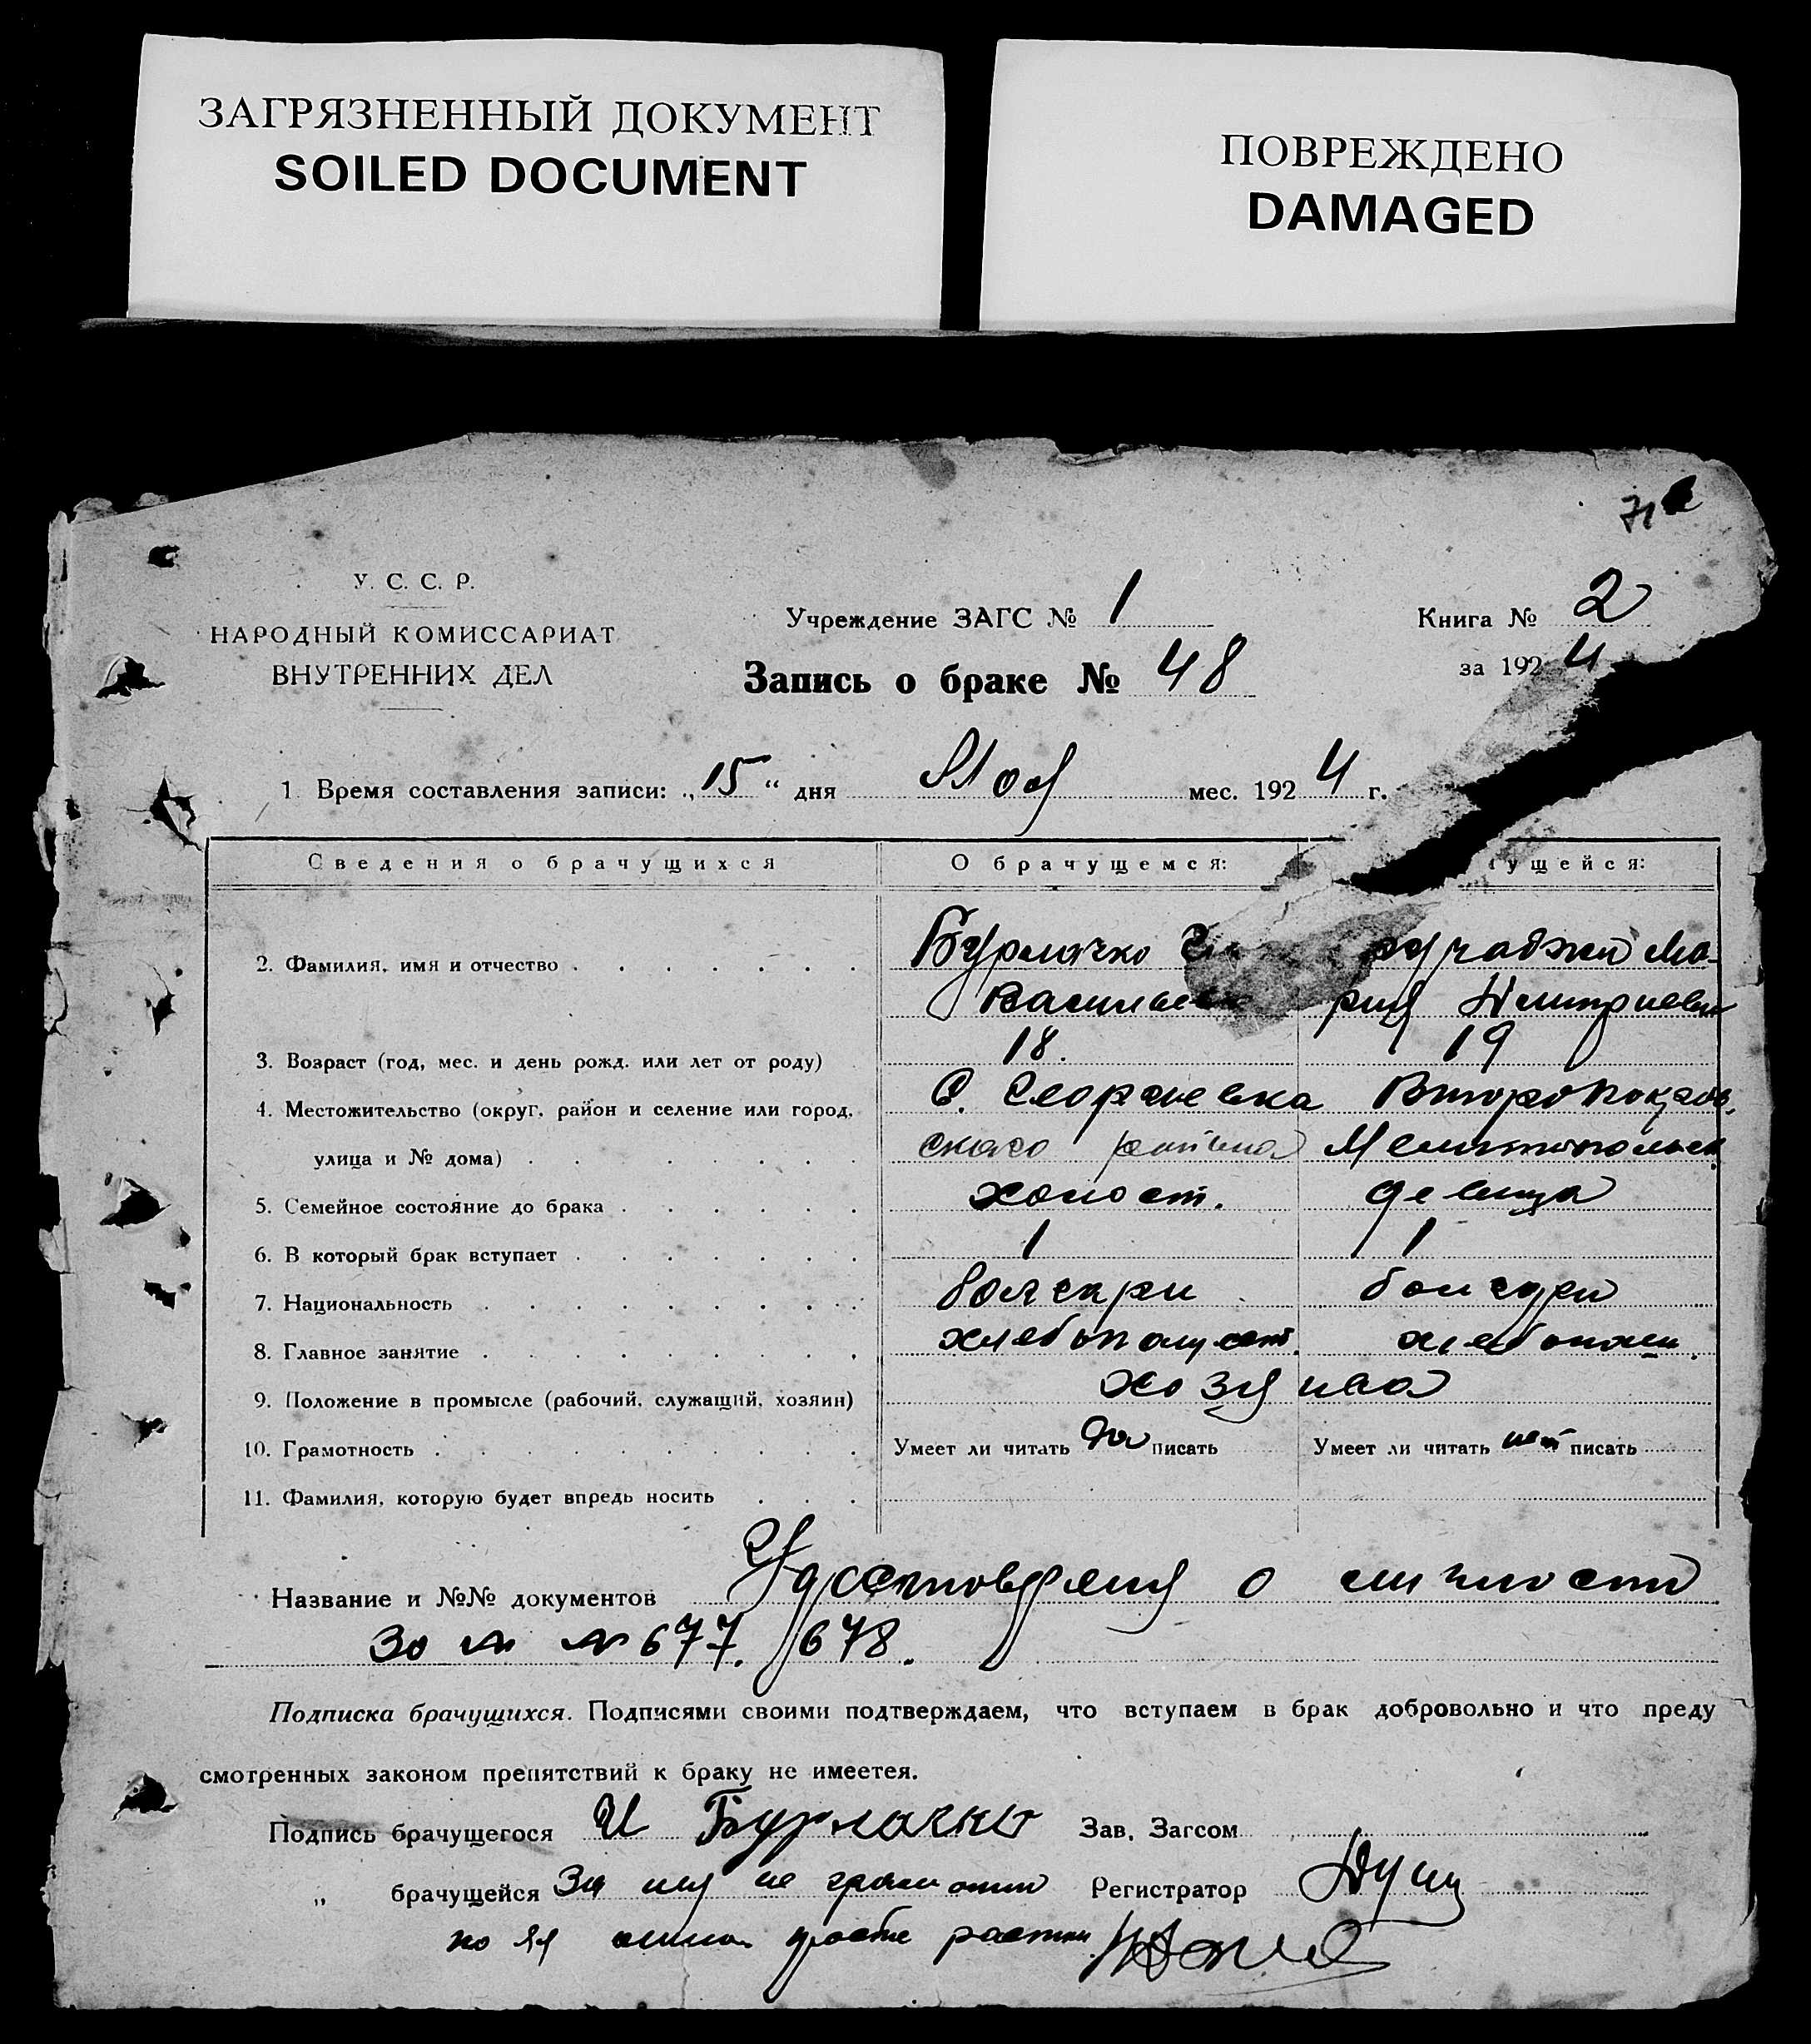 ЗАГРЯЗНЕННЫЙ ДОКУМЕНТ
SOILED DOCUMENT
ПОВРЕЖДЕНО
DAMAGED
71
У. С. С. Р.
НАРОДНЫЙ КОМИССАРИАТ
ВНУТРЕННИХ ДЕЛ
Учреждение ЗАГС № 1
Запись о браке № 48
Книга № 2
за 1924
1. Время составления записи: „15“ дня Мая мес. 1924 г.
Сведения о брачущихся О брачущемся: ущейся:
2. Фамилия, имя и отчество Бурлачко Ма-
Василь рия Дмитриевн
3. Возраст (год, мес. и день рожд. или лет от роду) 18. 19
4. Местожительство (округ, район и селение или город, С. Георгиевка Второпокров.
улица и № дома) скаго района Мелитопольск.
5. Семейное состояние до брака холост. девица
6. В который брак вступает 1 1
7. Национальность болгари болгари
8. Главное занятие хлебопашест. хлебопаш.
9. Положение в промысле (рабочий, служащий, хозяин) хозяива
10. Грамотность Умеет ли читать да писать Умеет ли читать нет писать
11. Фамилия, которую будет впредь носить
Название и №№ документов Удостоверения о личности
за № № 677. 678.
Подписка брачущихся. Подписями своими подтверждаем, что вступаем в брак добровольно и что преду
смотренных законом препятствий к браку не имеетея.
Подпись брачущегося И Бурлачко Зав. Загсом
„ брачущейся За ню не грамотно Регистратор
по ея личной просбе